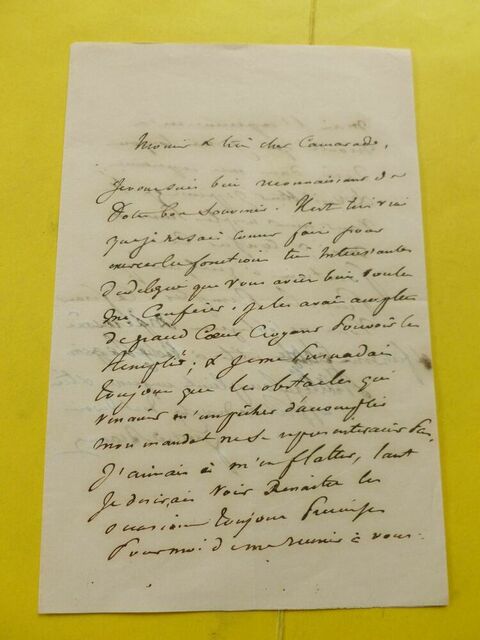 Monsieur & très cher Camarade,
Je vous suis bien reconnaissant de
Votre bon Souvenir. Il est très vrai
que je ne sais comment faire pour
exercer les fonctions très Intéressantes
que vous avez bien voulu
me Confier. Je les avais acceptées
de grand Cœur Croyant Pouvoir les
Remplir ; & Je me Persuadais
toujours que les obstacles qui
m'empêcher d'accomplir
mon mandat ne se représenteraient Pas.
J'aimais à m'en flatter, tant
Je désirais Voir Renaître les
occasions toujours Précieuses
Pour moi de me réunir à vous.